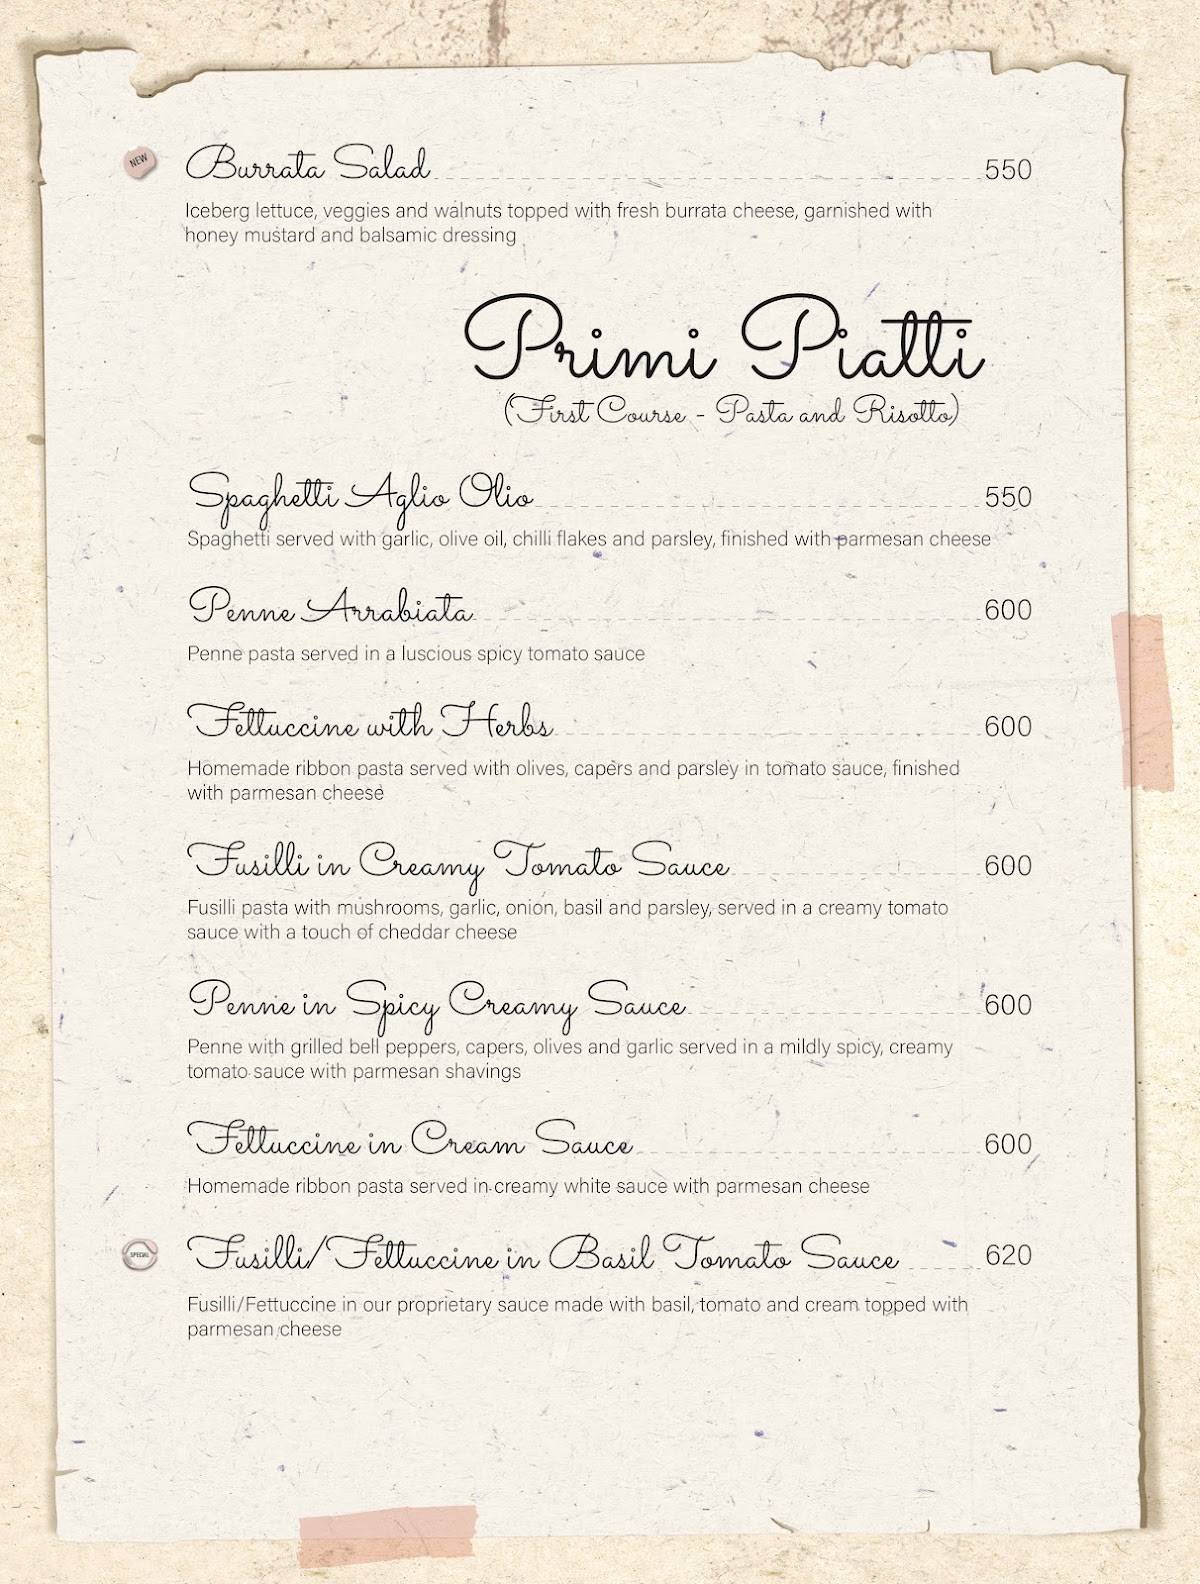 NEW
Burrata Salad 550
Iceberg lettuce, veggies and walnuts topped with fresh burrata cheese, garnished with
honey mustard and balsamic dressing
Primi Piatti
(First Course - Pasta and Risotto)
Spaghetti Aglio Olio 550
Spaghetti served with garlic, olive oil, chilli flakes and parsley, finished with parmesan cheese
Penne Arrabiata 600
Penne pasta served in a luscious spicy tomato sauce
Fettuccine with Herbs 600
Homemade ribbon pasta served with olives, capers and parsley in tomato sauce, finished
with parmesan cheese
Fusilli in Creamy Tomato Sauce 600
Fusilli pasta with mushrooms, garlic, onion, basil and parsley, served in a creamy tomato
sauce with a touch of cheddar cheese
Penne in Spicy Creamy Sauce 600
Penne with grilled bell peppers, capers, olives and garlic served in a mildly spicy, creamy
tomato sauce with parmesan shavings
Fettuccine in Cream Sauce 600
Homemade ribbon pasta served in creamy white sauce with parmesan cheese
SPECIAL
Fusilli/Fettuccine in Basil Tomato Sauce 620
Fusilli/Fettuccine in our proprietary sauce made with basil, tomato and cream topped with
parmesan cheese